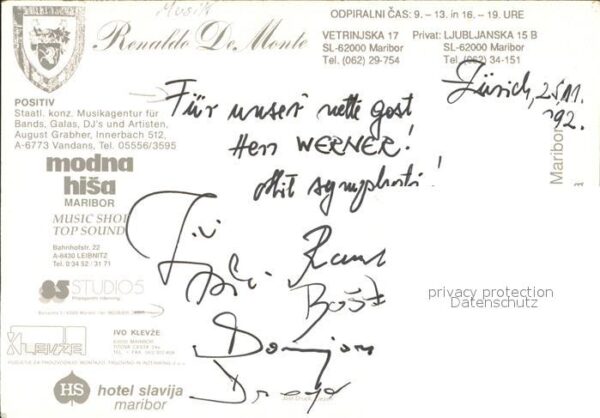 Musik
ODPIRALNI ČAS: 9. – 13. in 16. – 19. URE
Renaldo De Monte
VETRINJSKA 17
SL-62000 Maribor
Tel. (062) 29-754
Privat: LJUBLJANSKA 15 B
SL-62000 Maribor
Tel. (062) 34-151
Zürich, 25.11.
'92.
Für unser nette gost
Herr WERNER!
Mit symphati!
POSITIV
Staatl. konz. Musikagentur für
Bands, Galas, DJ's und Artisten,
August Grabher, Innerbach 512,
A-6773 Vandans, Tel. 05556/3595
modna
hiša
MARIBOR
Maribor
MUSIC SHOP
TOP SOUND
Bahnhofstr. 22
A-8430 LEIBNITZ
Tel. 0 34 52 / 31 71
STUDIO 5
privacy protection
Datenschutz
Bošt
Damjan
KLEVŽE
IVO KLEVŽE
62000 MARIBOR
HS
hotel slavija
maribor